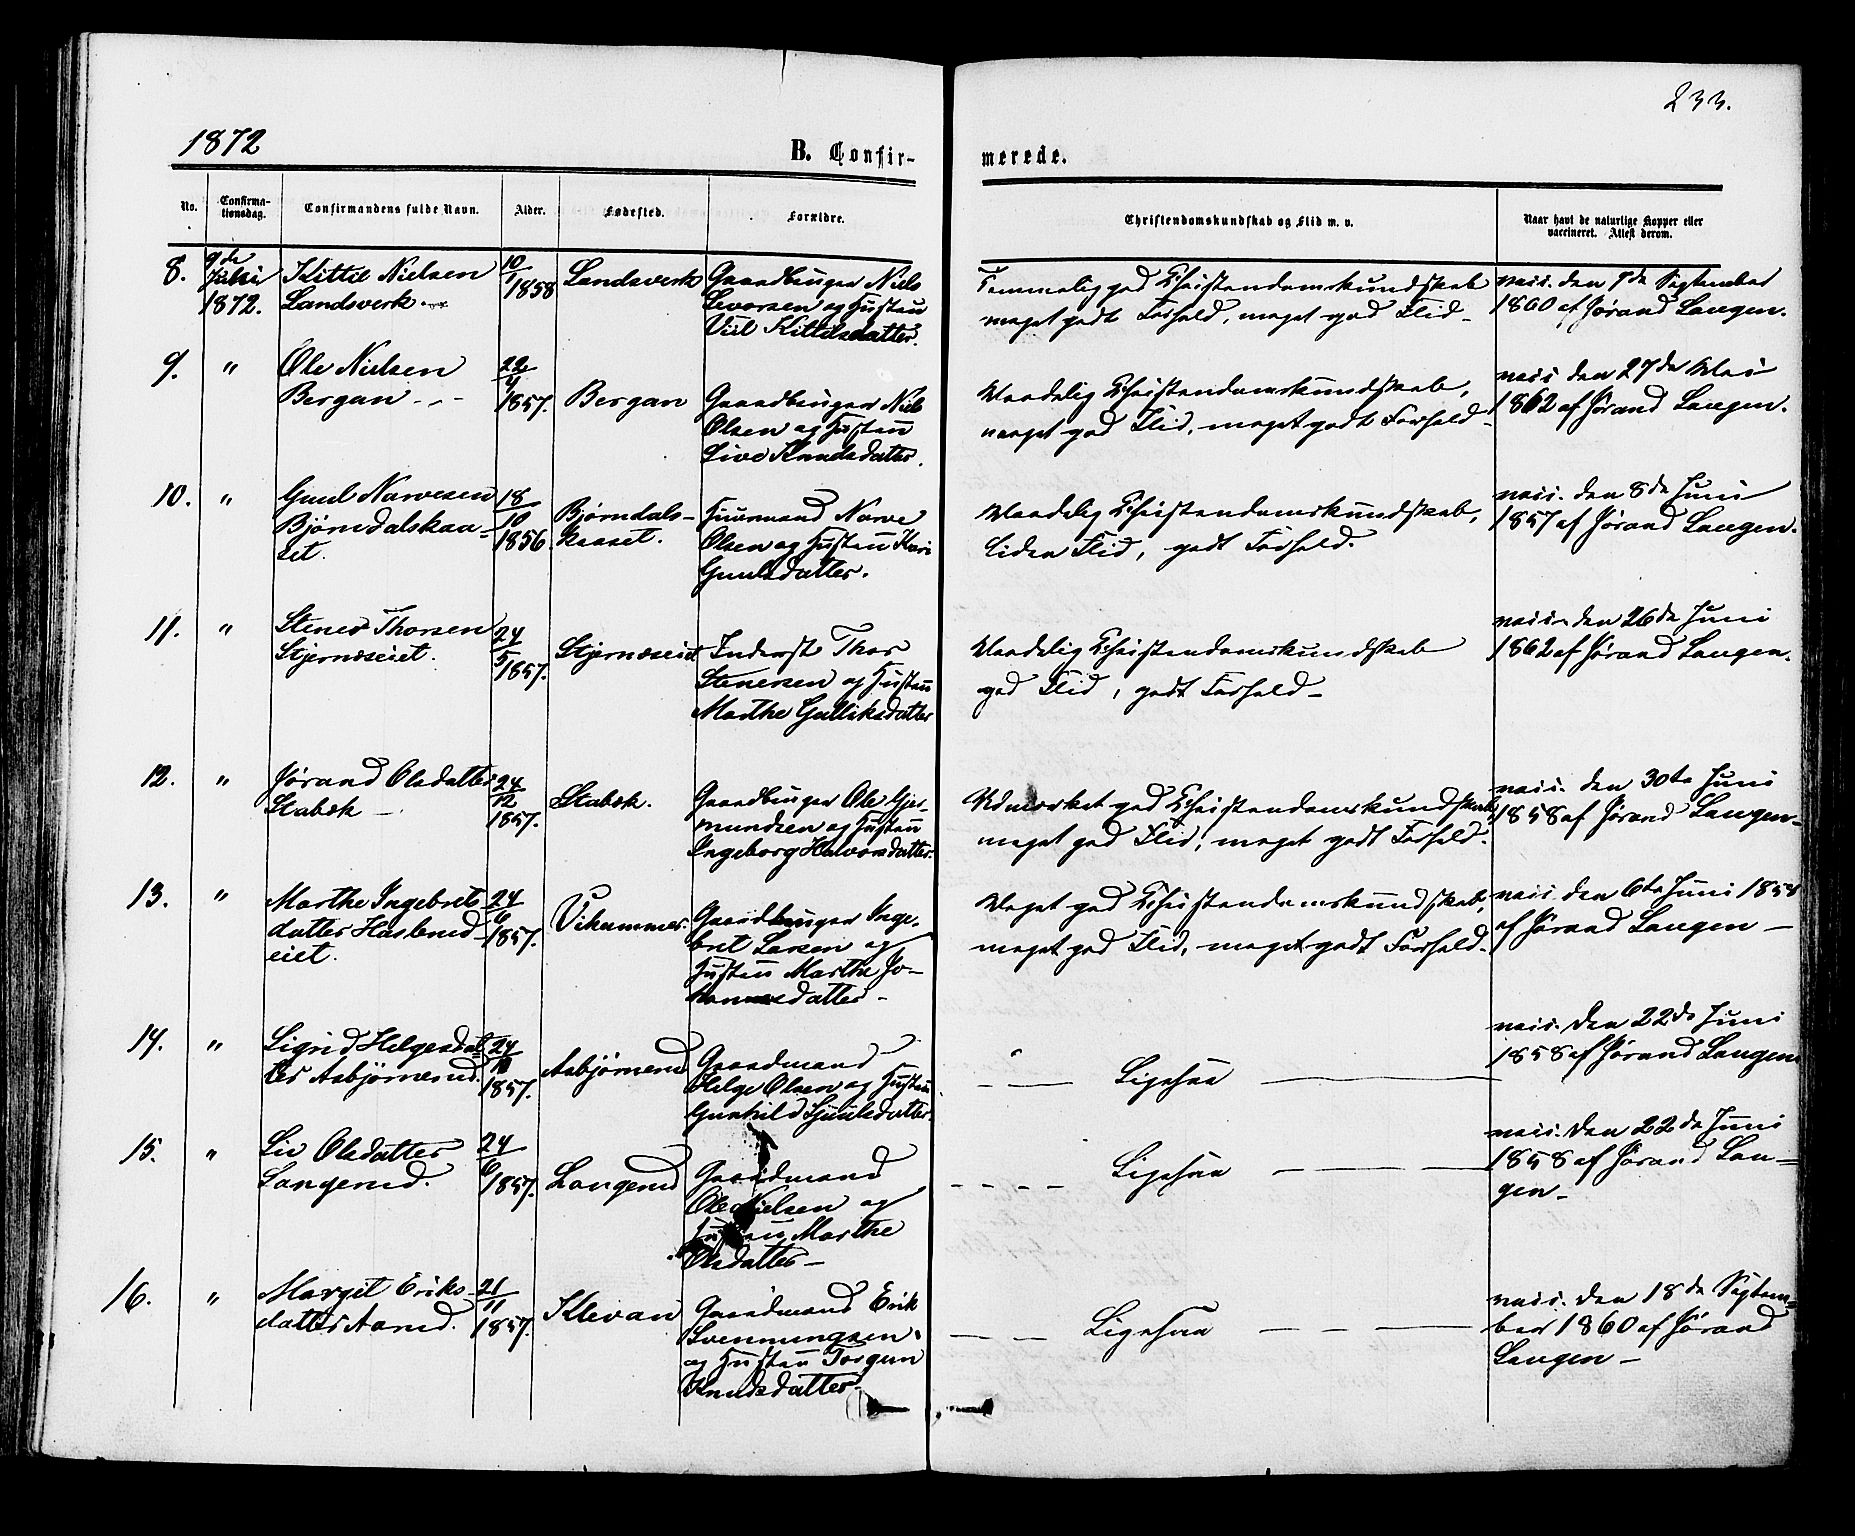 233.
1872
B. Confir-
merede.
No.
Confirma-
tionsdag.
Confirmandens fulde Navn.
Alder.
Fødested.
Forældre.
Christendomskundskab og Flid m. v.
Naar havt de naturlige Kopper eller
vaccineret. Attest derom.
8.
1872.
Kittil Nielsen
Landsverk
10/1 1858
Landsverk
Gaardbruger Niels
og Hustru
Kittilsdatter.
Temmelig god Christendomskundskab
meget godt Forhold, meget god Flid
vacc. den 7de September
1860 af Jørand Langen.
9.
"
Ole Nielsen
Bergan
22/4 1857.
Bergan
Gaardbruger Niels
Olsen og Hustru
Live Knudsdatter.
Maadelig Christendomskundskab,
meget god Flid, meget godt Forhold
vacc. den 27de Mai
1862 af Jørand Langen.
10.
"
Guul Narvesen
Bjørndalskaa-
set.
18/10 1856.
Bjørndals-
kaaset.
Huusmand Narve
Olsen og Hustru Kari
Guulsdatter.
Maadelig Christendomskundskab,
liden Flid, godt Forhold.
vacc. den 8de Juni
1857 af Jørand Langen.
11.
"
Stener Thorsen
Stjernæseiet.
24/5 1857.
Stjernæseiet
Inderst Thor
Stenersen og Hustru
Marthe Gulliksdatter
Maadelig Christendomskundskab
god Flid, godt Forhold
vacc. den 26de Juni
1862 af Jørand Langen.
12.
"
Jørand Olsdatter
Stabæk
24/12 1857.
Stabæk.
Gaardbruger Ole Gjer-
mundsen og Hustru
Ingeborg Halvorsdatter.
Udmærket god Christendomskundskab,
meget god Flid, meget godt Forhold.
vacc. den 30te Juni
1858 af Jørand Langen
13.
"
Marthe Ingebrets
datter Haslerud-
eiet.
24/6 1857.
Vikammer.
Gaardbruger Inge-
bret Larsen og
Hustru Marthe Jo-
hannesdatter
Meget god Christendomskundskab,
meget god Flid, meget godt Forhold.
vacc. den 6te Juni 1858
af Jørand Langen
14.
"
Sigrid Helgesdat
ter Asbjørnerud.
24/10 1857.
Asbjørnerud
Gaardmand
Helge Olsen og Hustru
Gunhild Sjuulsdatter.
Ligesaa
vacc. den 22de Juni
1858 af Jørand Langen
15.
"
Liv Olsdatter
Langerud.
24/6 1857.
Langerud
Gaardmand
Ole Nielsen og
Hustru Marthe
Olsdatter
Ligesaa
vacc. den 22de Juni
1858 af Jørand Lan-
gen
16.
"
Margit Eriks-
datter Aarud.
21/11 1857.
Klevan
Gaardmand Erik
Svenningsen
og Hustru Torgun
Knudsdatter.
Ligesaa
vacc. den 18de Septem-
ber 1860 af Jørand
Langen